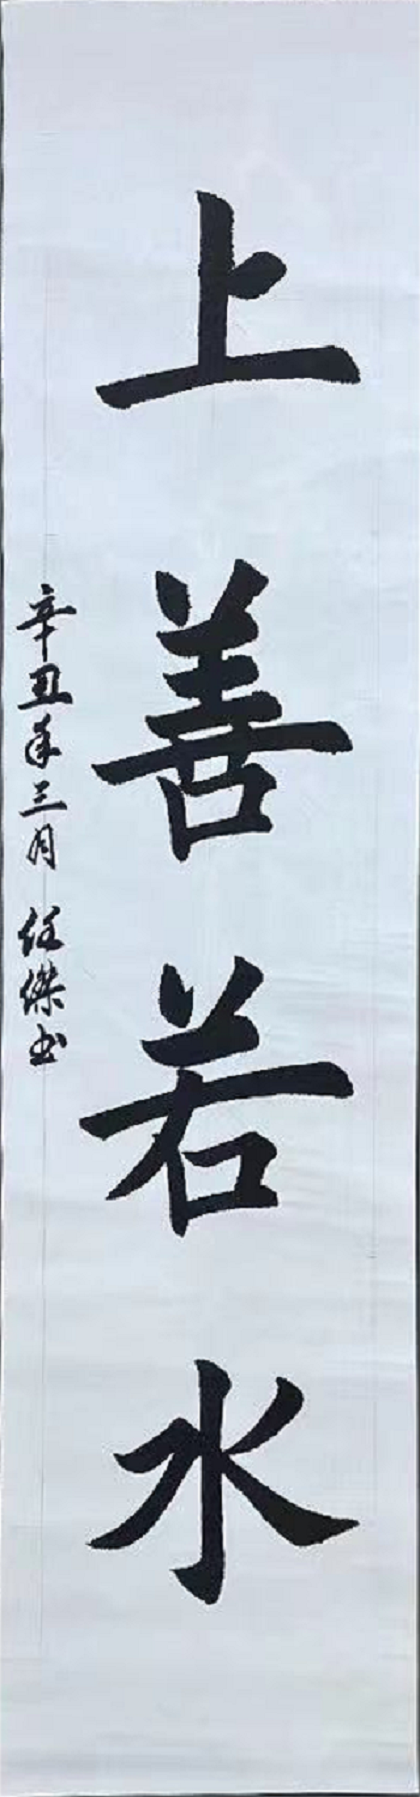 上善若水
辛丑年三月 任傑书